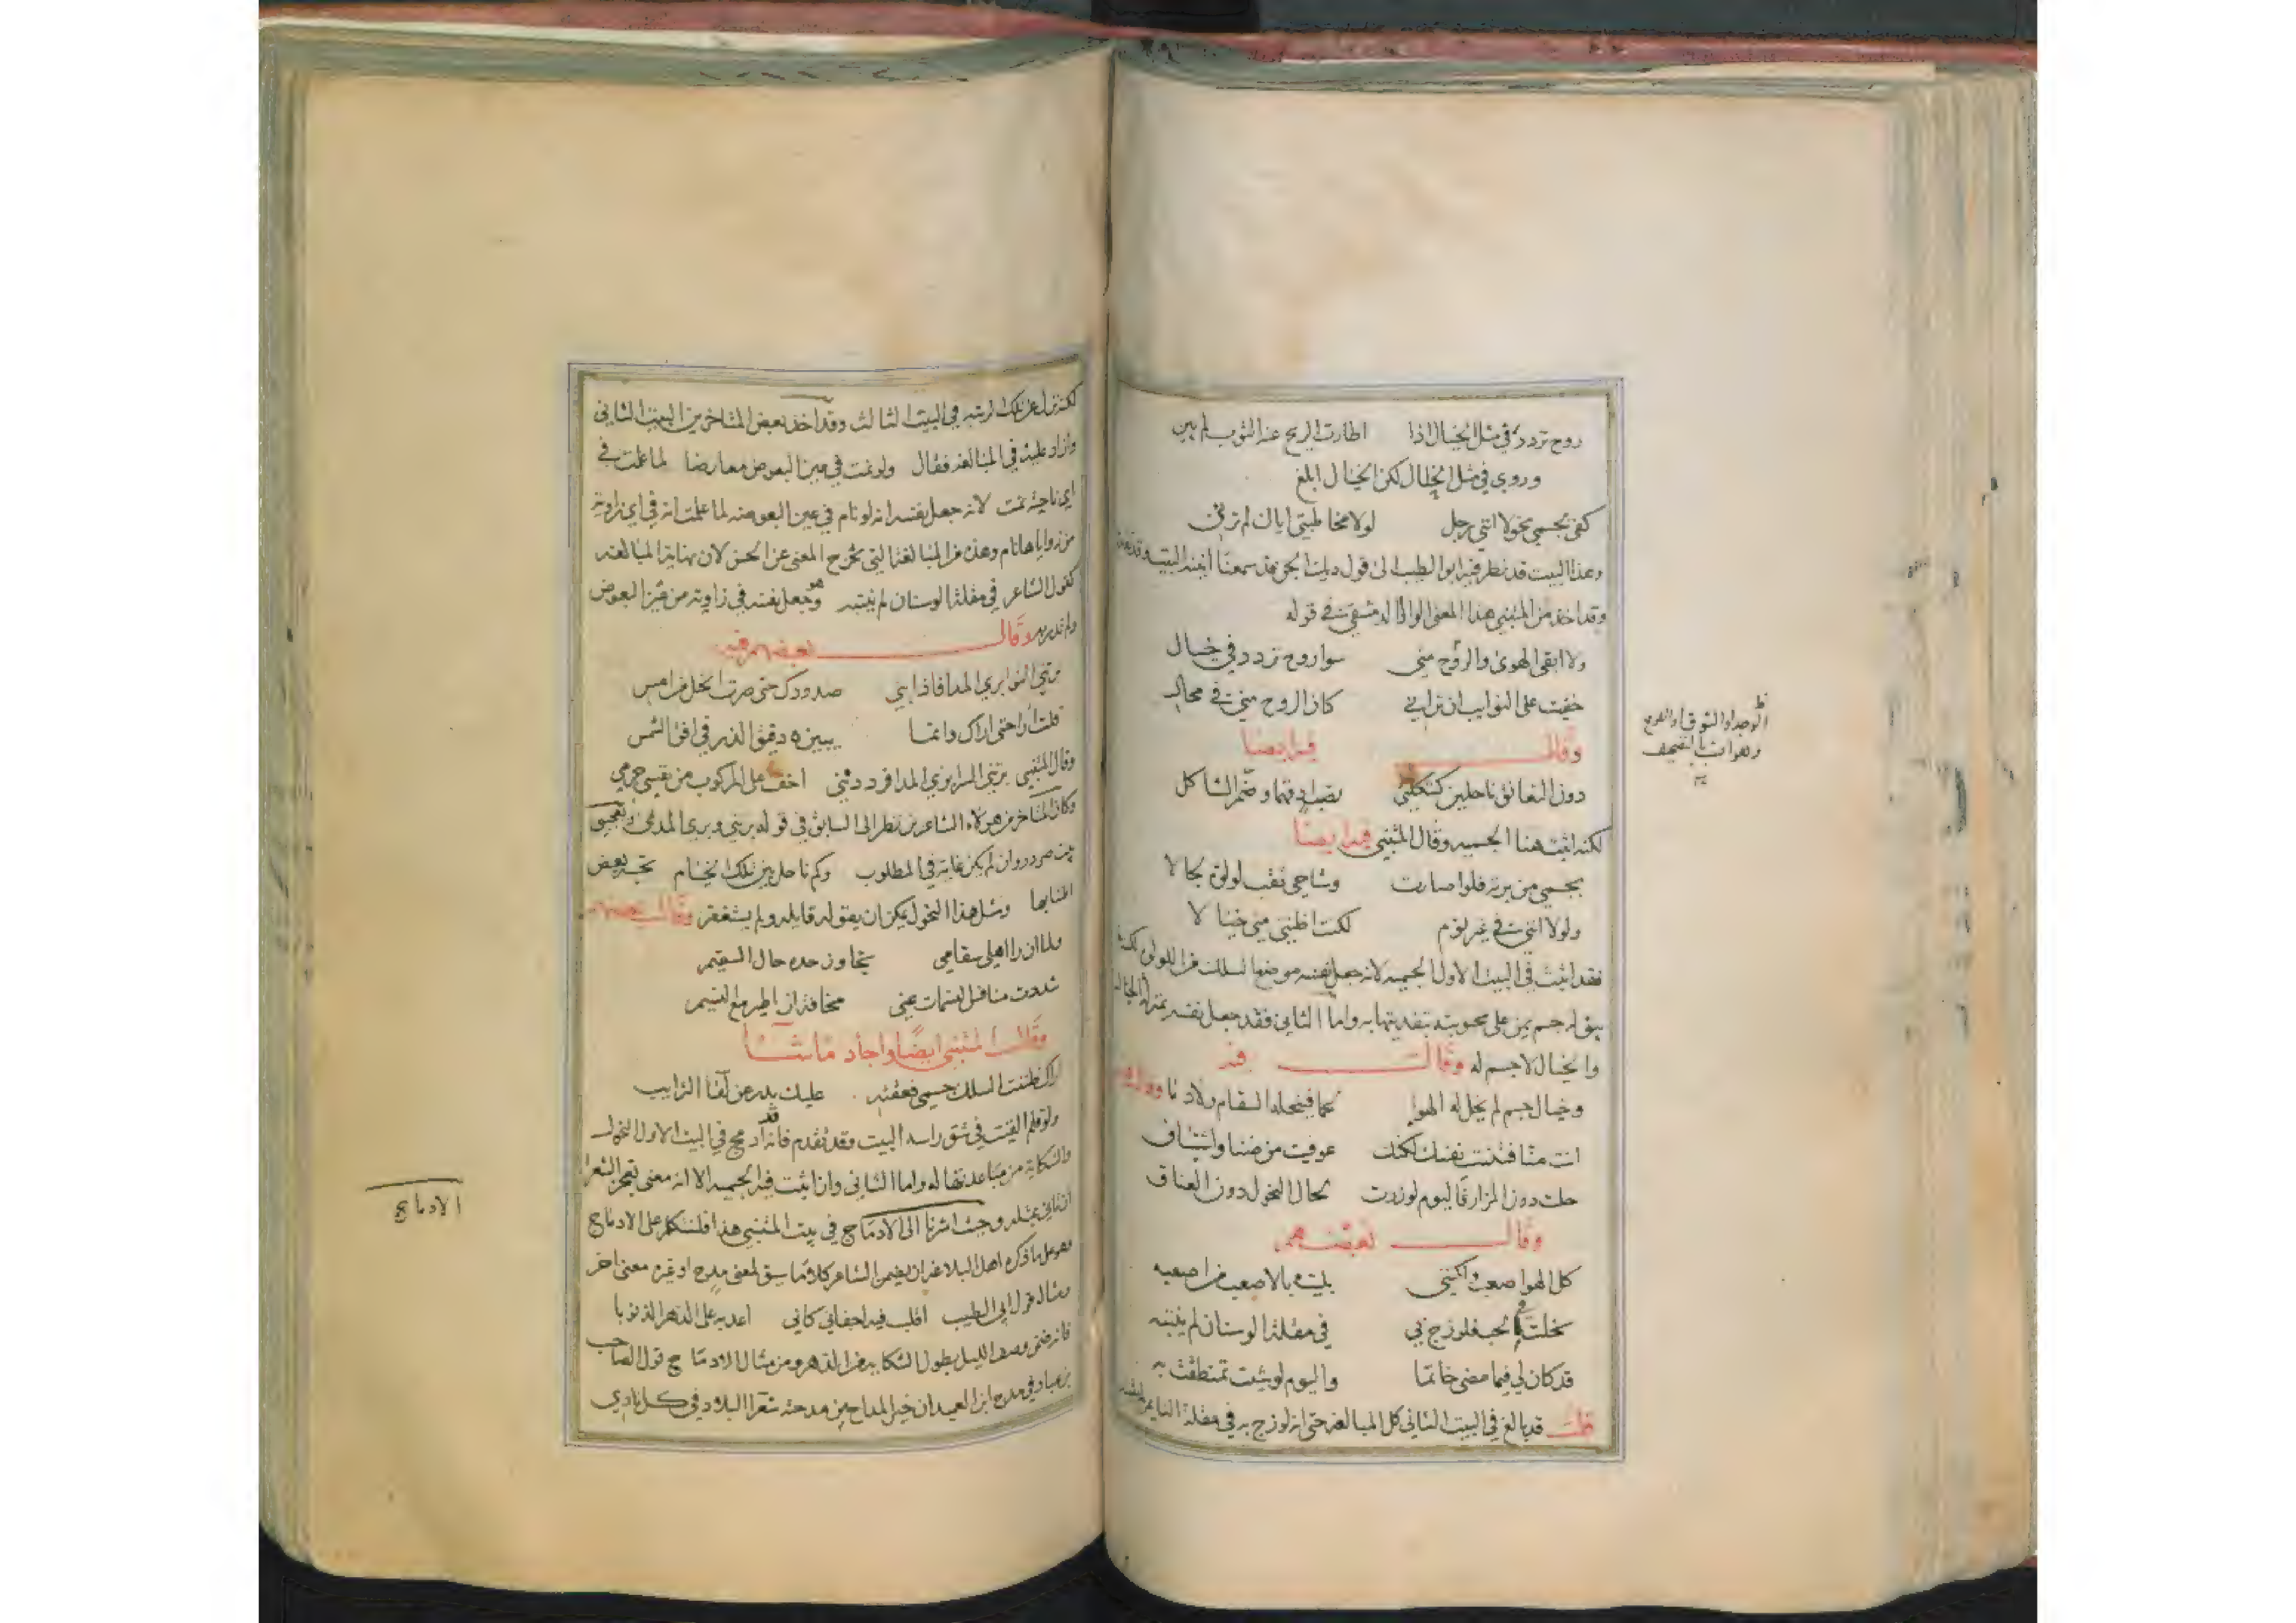 روح تردد في مثل الخيال اذا اطارت الريح عنه الثوب لم يبن
وروي في مثل الخلال لكن الخيال ابلغ
كفى بجسمي نحولا انني رجل لولا مخاطبتي اياك لم ترني
وهذا البيت قد نظر فيه ابو الطيب الى قول ديك الجن سمعنا البيت وقد
وقد اخذ من المتنبي هذا المعنى الواوا الدمشقي في قوله
ولا ابقى الهوى والروح مني سوا روح تردد في خيال
خفيت على النوايب ان تراني كان الروح مني في محال
وقال فيه ايضا
دون التعانق ناحلين كشكلتي نصب ادقهما وضم الشاكل
لكنه اثبت هنا الجسميه وقال المتنبي فيه ايضا
بجسمي من برته فلو اصارت وشاحي ثقب لولوة لجالا
ولولا انني في غير نوم لكنت اظنني مني خيالا
فقد اثبت في البيت الاول الجسميه لانه جعل نفسه موضع السلك من اللولو لكنه
يبق له جسم يمن على محبوبته بتفديتها به واما الثاني فقد جعل نفسه بمنزلة الخيال
والخيال لا جسم له وقال فيه
وخيال جسم لم يخل له الهوا لحما فينحله السقام ولا دما
انت منا فتنت نفسك لكنك عوفيت من ضنا واشتياق
حلت دون المزار فاليوم لو زرت لحال النحول دون العناق
وقال بعضهم
كل الهوا صعب ولكنني بليت بالاصعب من اصعبه
نحلت في الحب فلو زج بي في مقلة الوسنان لم ينتبه
قد كان لي فيما مضى خاتما واليوم لو شيت تمنطقت به
قلت قد بالغ في البيت الثاني كل المبالغه حتى انه لو زج به في مقلة النايم
الوجد او الشوق
بالتصحيف
لكنه نزل عن تلك الرتبه في البيت الثالث وقد اخذ بعض المتاخرين البيت الثاني
وازاد عليه في المبالغه فقال ولو نمت في عين البعوض معارضا لما علمت في
اي ناحية نمت لانه جعل نفسه انه لو نام في عين البعوضه لما علمت انه في اي زاوية
من زواياها نام وهذه من المبالغة التي تخرج المعنى عن الحسن لان نهاية المبالغه
كقول الشاعر في مقلة الوسنان لم ينتبه وهو جعل نفسه في زاوية من عين البعوض
ولم تدر به وقال بعضهم فيه
برتني النوا بري المدا فاذا بني صدودك حتى صرت انحل من امس
فلست ارا حتى اراك وانما يبين هباء الذر في افق الشمس
وقال المتنبي برتني السرا بري المدا فرددنني اخف على المركوب من نفسي جرمي
وكان المتاخر من هولاء الشاعرين نظر الى السابق في قوله برتني وبري المدى
بيت صردر وان لم يكن غاية في المطلوب وكم ناحل بين تلك الخيام تحسبه بعض
اطنابها ومثل هذا النحول يمكن ان يقوله قايله ولم يستغفر وقال بعضهم
ولما ان راا هلي سقامي تجاوز حده حال السقيم
شددت منافذ النسمات عني مخافة ان اطير مع النسيم
وقال المتنبي ايضا واجاد ما شا
اراك ظننت السلك جسمي فعقته عليك بدر عن لقا الترايب
ولو قلم القيت في شق راسه البيت وقد تقدم فانه قد ادمج في البيت الاول النحول
والشكاية من مباعدتها له واما الثاني وان اثبت فيه الجسميه الا انه معنى تعجز الشعرا
ان تاتي بمثله وحيث اشرنا الى الادماج في بيت المتنبي هذا فلنتكلم على الادماج
وهو على ما ذكره اهل البلاغه ان يضمن الشاعر كلاما سيق لمعنى مدح او غيره معنى اخر
ومثاله قول ابي الطيب اقلب فيه اجفاني كاني اعد به على الدهر الذنوبا
فانه ضمن وصف الليل بطول الشكايه من الدهر ومن مثال الادماج قول الصاحب
بن عباد في مدح ابن العميد ان خير المداح من مدحته شعرا البلاد في كل نادي
الادماج